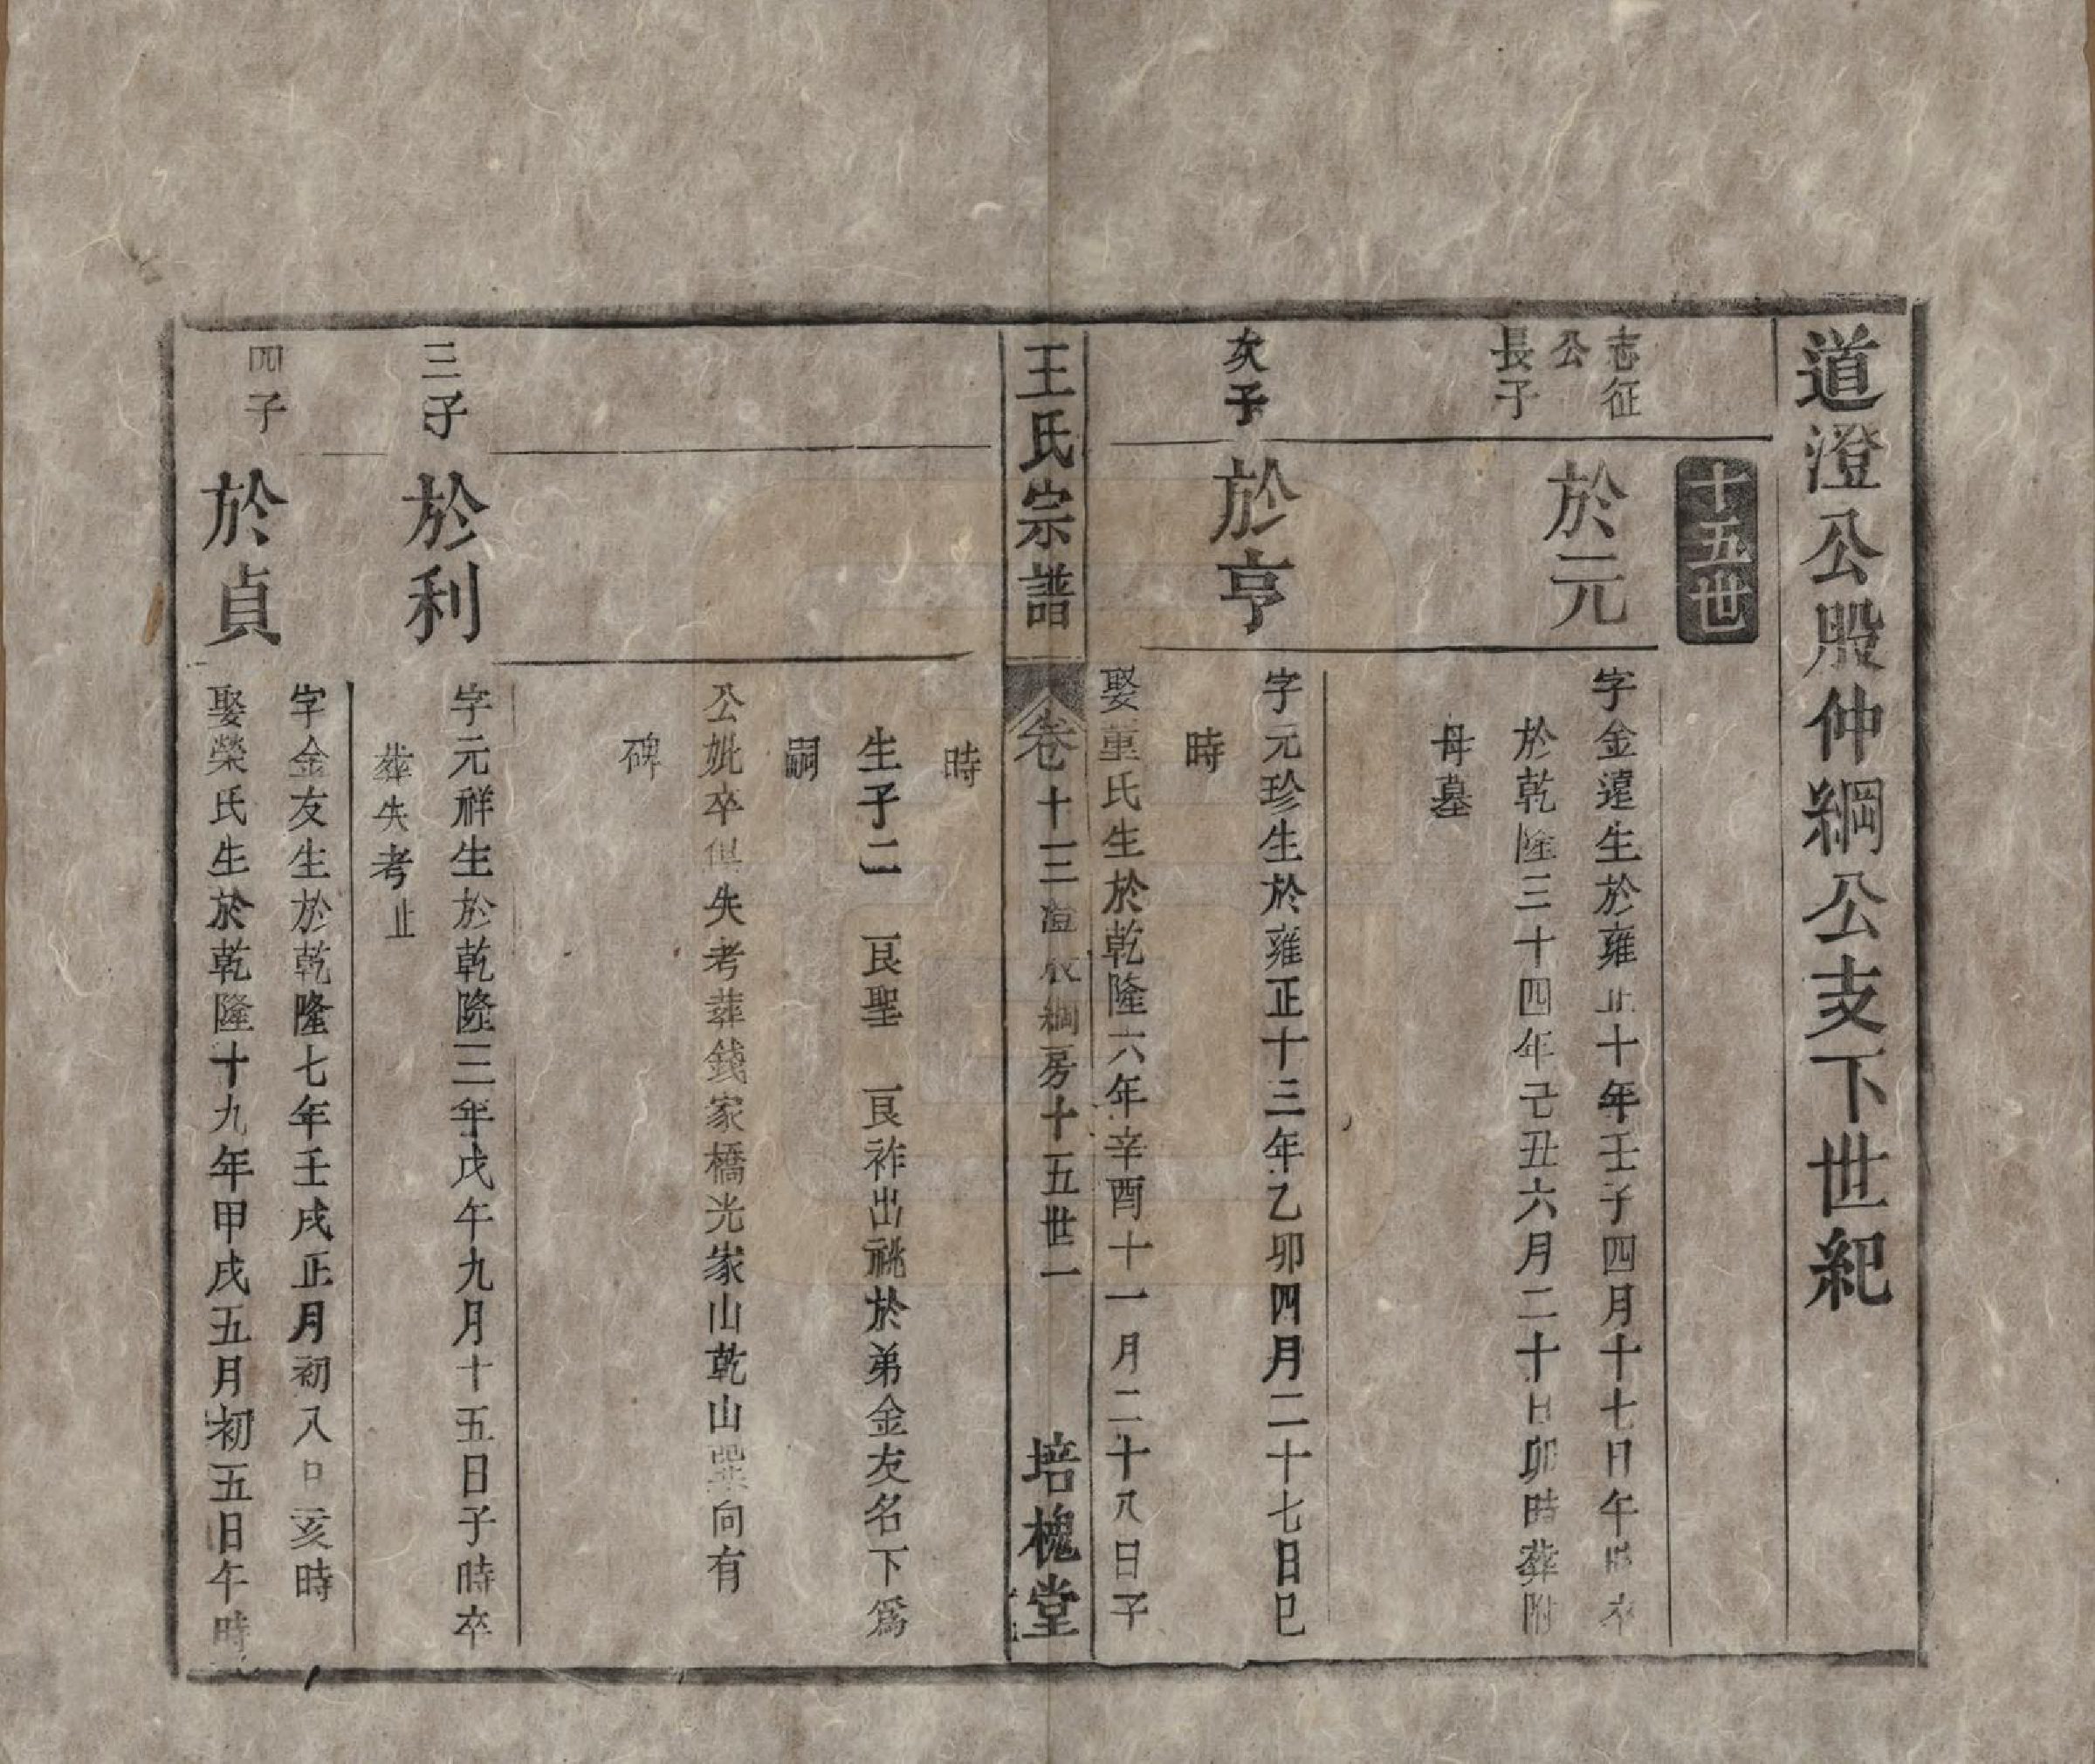 道澄公股仲綱公支下世紀
十五世
志征
公
長子
於元
字金遠生於雍正十年壬子四月十七日午時卒
於乾隆三十四年己丑六月二十日卯時葬附
母墓
次子
於亨
字元珍生於雍正十三年乙卯四月二十七日巳
時
娶董氏生於乾隆六年辛酉十一月二十八日子
王氏宗譜
卷十三 綱房十五世一
培槐堂
時
生子二 艮聖 艮祚出祧於弟金友名下為
嗣
公妣卒俱失考葬錢家橋光家山乾山巽向有
碑
三子
於利
字元祥生於乾隆三年戊午九月十五日子時卒
葬失考止
四子
於貞
字金友生於乾隆七年壬戌正月初八日亥時
娶榮氏生於乾隆十九年甲戌五月初五日午時